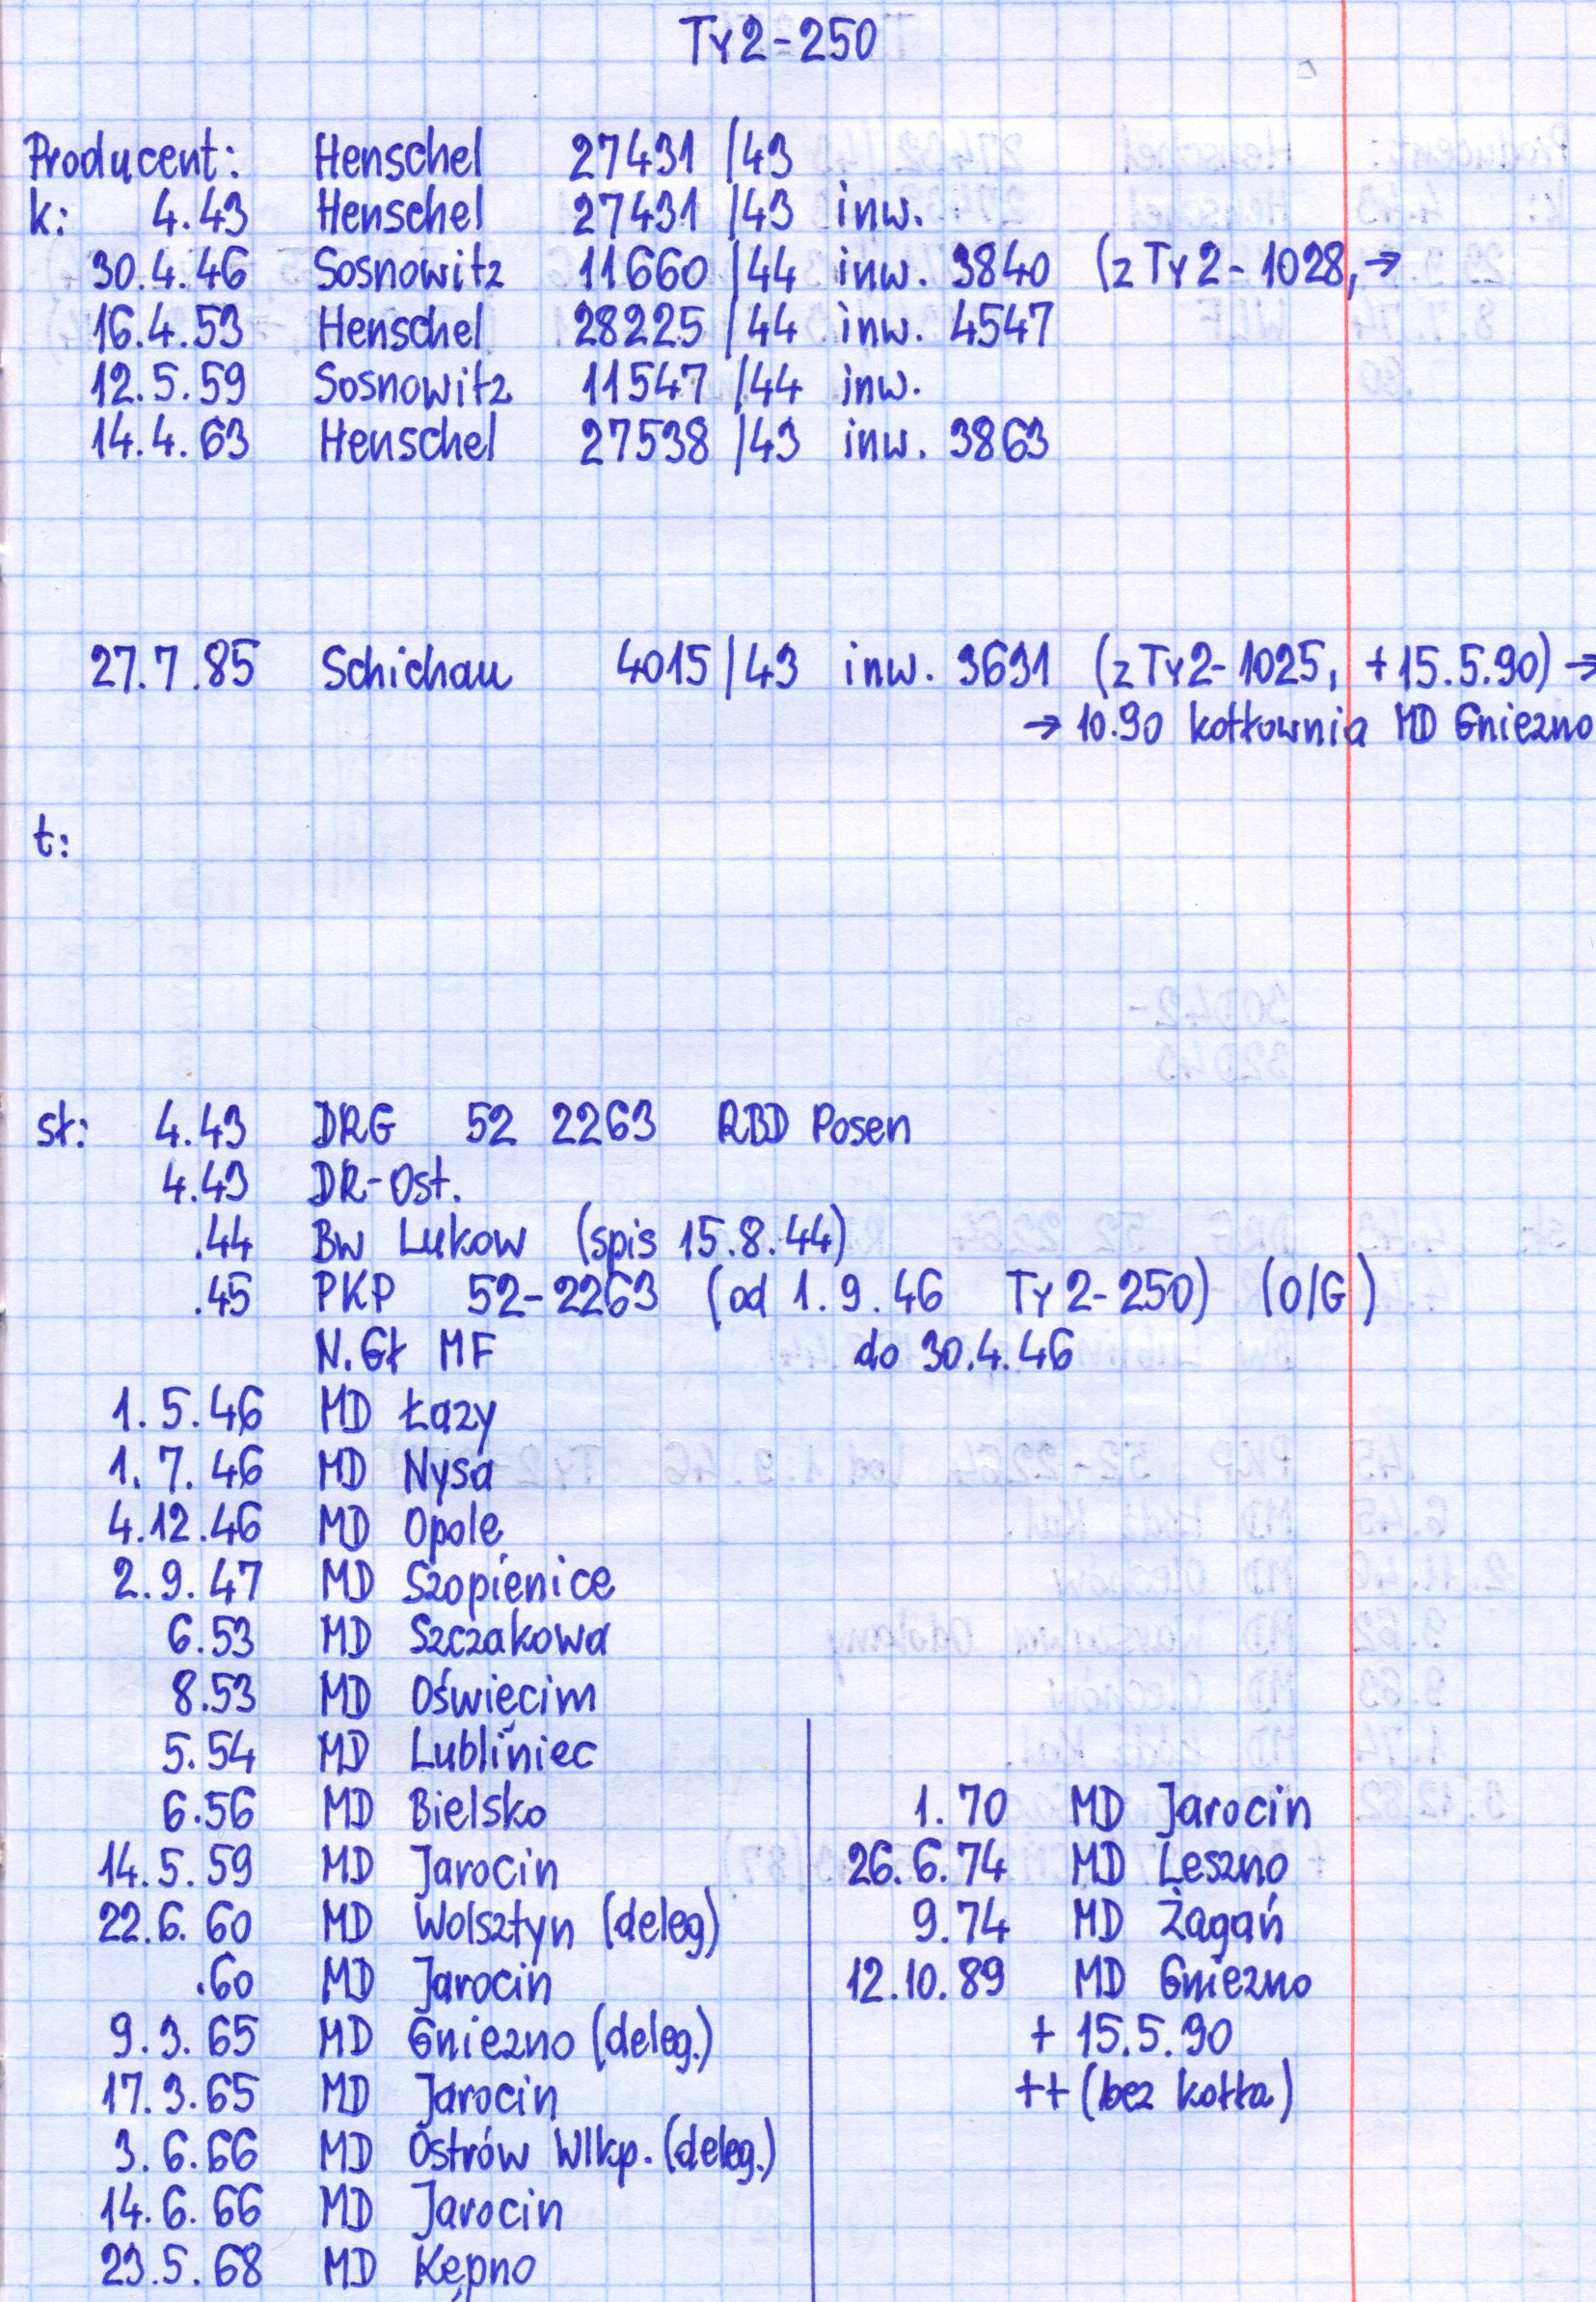 Ty2-250
Producent: Henschel 27431/43
k: 4.43 Henschel 27431/43 inw.
30.4.46 Sosnowitz 11660/44 inw. 3840 (z Ty2-1028, →
16.4.53 Henschel 28225/44 inw. 4547
12.5.59 Sosnowitz 11547/44 inw.
14.4.63 Henschel 27538/43 inw. 3863
27.7.85 Schichau 4015/43 inw. 3631 (z Ty2-1025, +15.5.90) →
→ 10.90 kotłownia MD Gniezno
t:
st: 4.43 DRG 52 2263 RBD Posen
4.43 DR-Ost.
.44 Bw Lukow (spis 15.8.44)
.45 PKP 52-2263 (od 1.9.46 Ty2-250) (O/G)
N.Gł MF do 30.4.46
1.5.46 MD Łazy
1.7.46 MD Nysa
4.12.46 MD Opole
2.9.47 MD Szopienice
6.53 MD Szczakowa
8.53 MD Oświęcim
5.54 MD Lubliniec
6.56 MD Bielsko
14.5.59 MD Jarocin
22.6.60 MD Wolsztyn (deleg)
.60 MD Jarocin
9.3.65 MD Gniezno (deleg.)
17.3.65 MD Jarocin
3.6.66 MD Ostrów Wlkp. (deleg.)
14.6.66 MD Jarocin
23.5.68 MD Kępno
1.70 MD Jarocin
26.6.74 MD Leszno
9.74 MD Żagań
12.10.89 MD Gniezno
+ 15.5.90
++ (bez kotła)